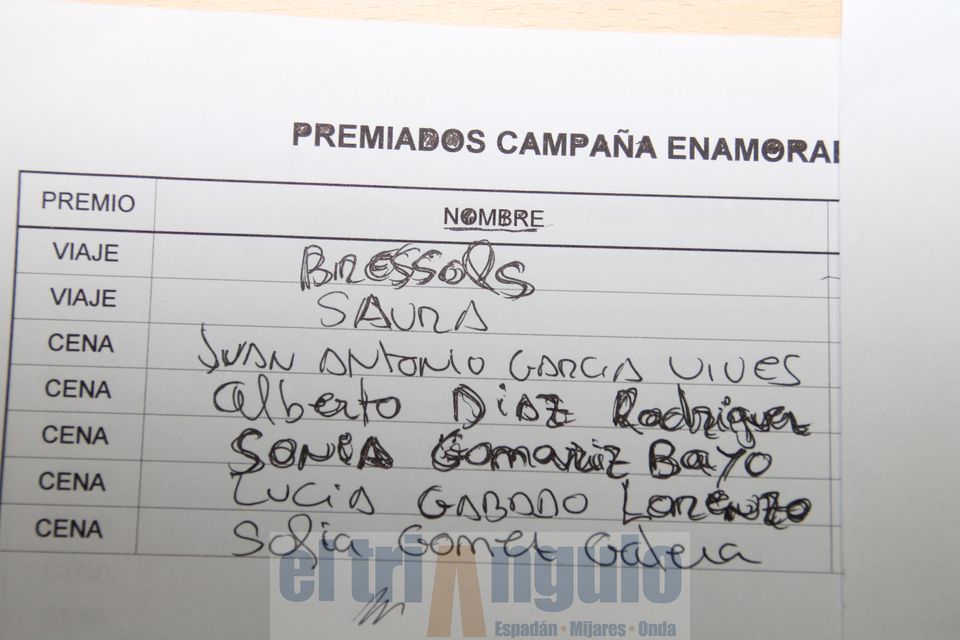 PREMIADOS CAMPAÑA ENAMORA
PREMIO NOMBRE
VIAJE BRESSOLS
VIAJE SAURA
CENA JUAN ANTONIO GARCIA VIVES
CENA Alberto DiaZ Rodriguez
CENA SONIA Gomariz Bayo
CENA LUCIA GABALDO LORENZO
CENA Sofia Gomez Galera
el triángulo
Espadán • Mijares • Onda